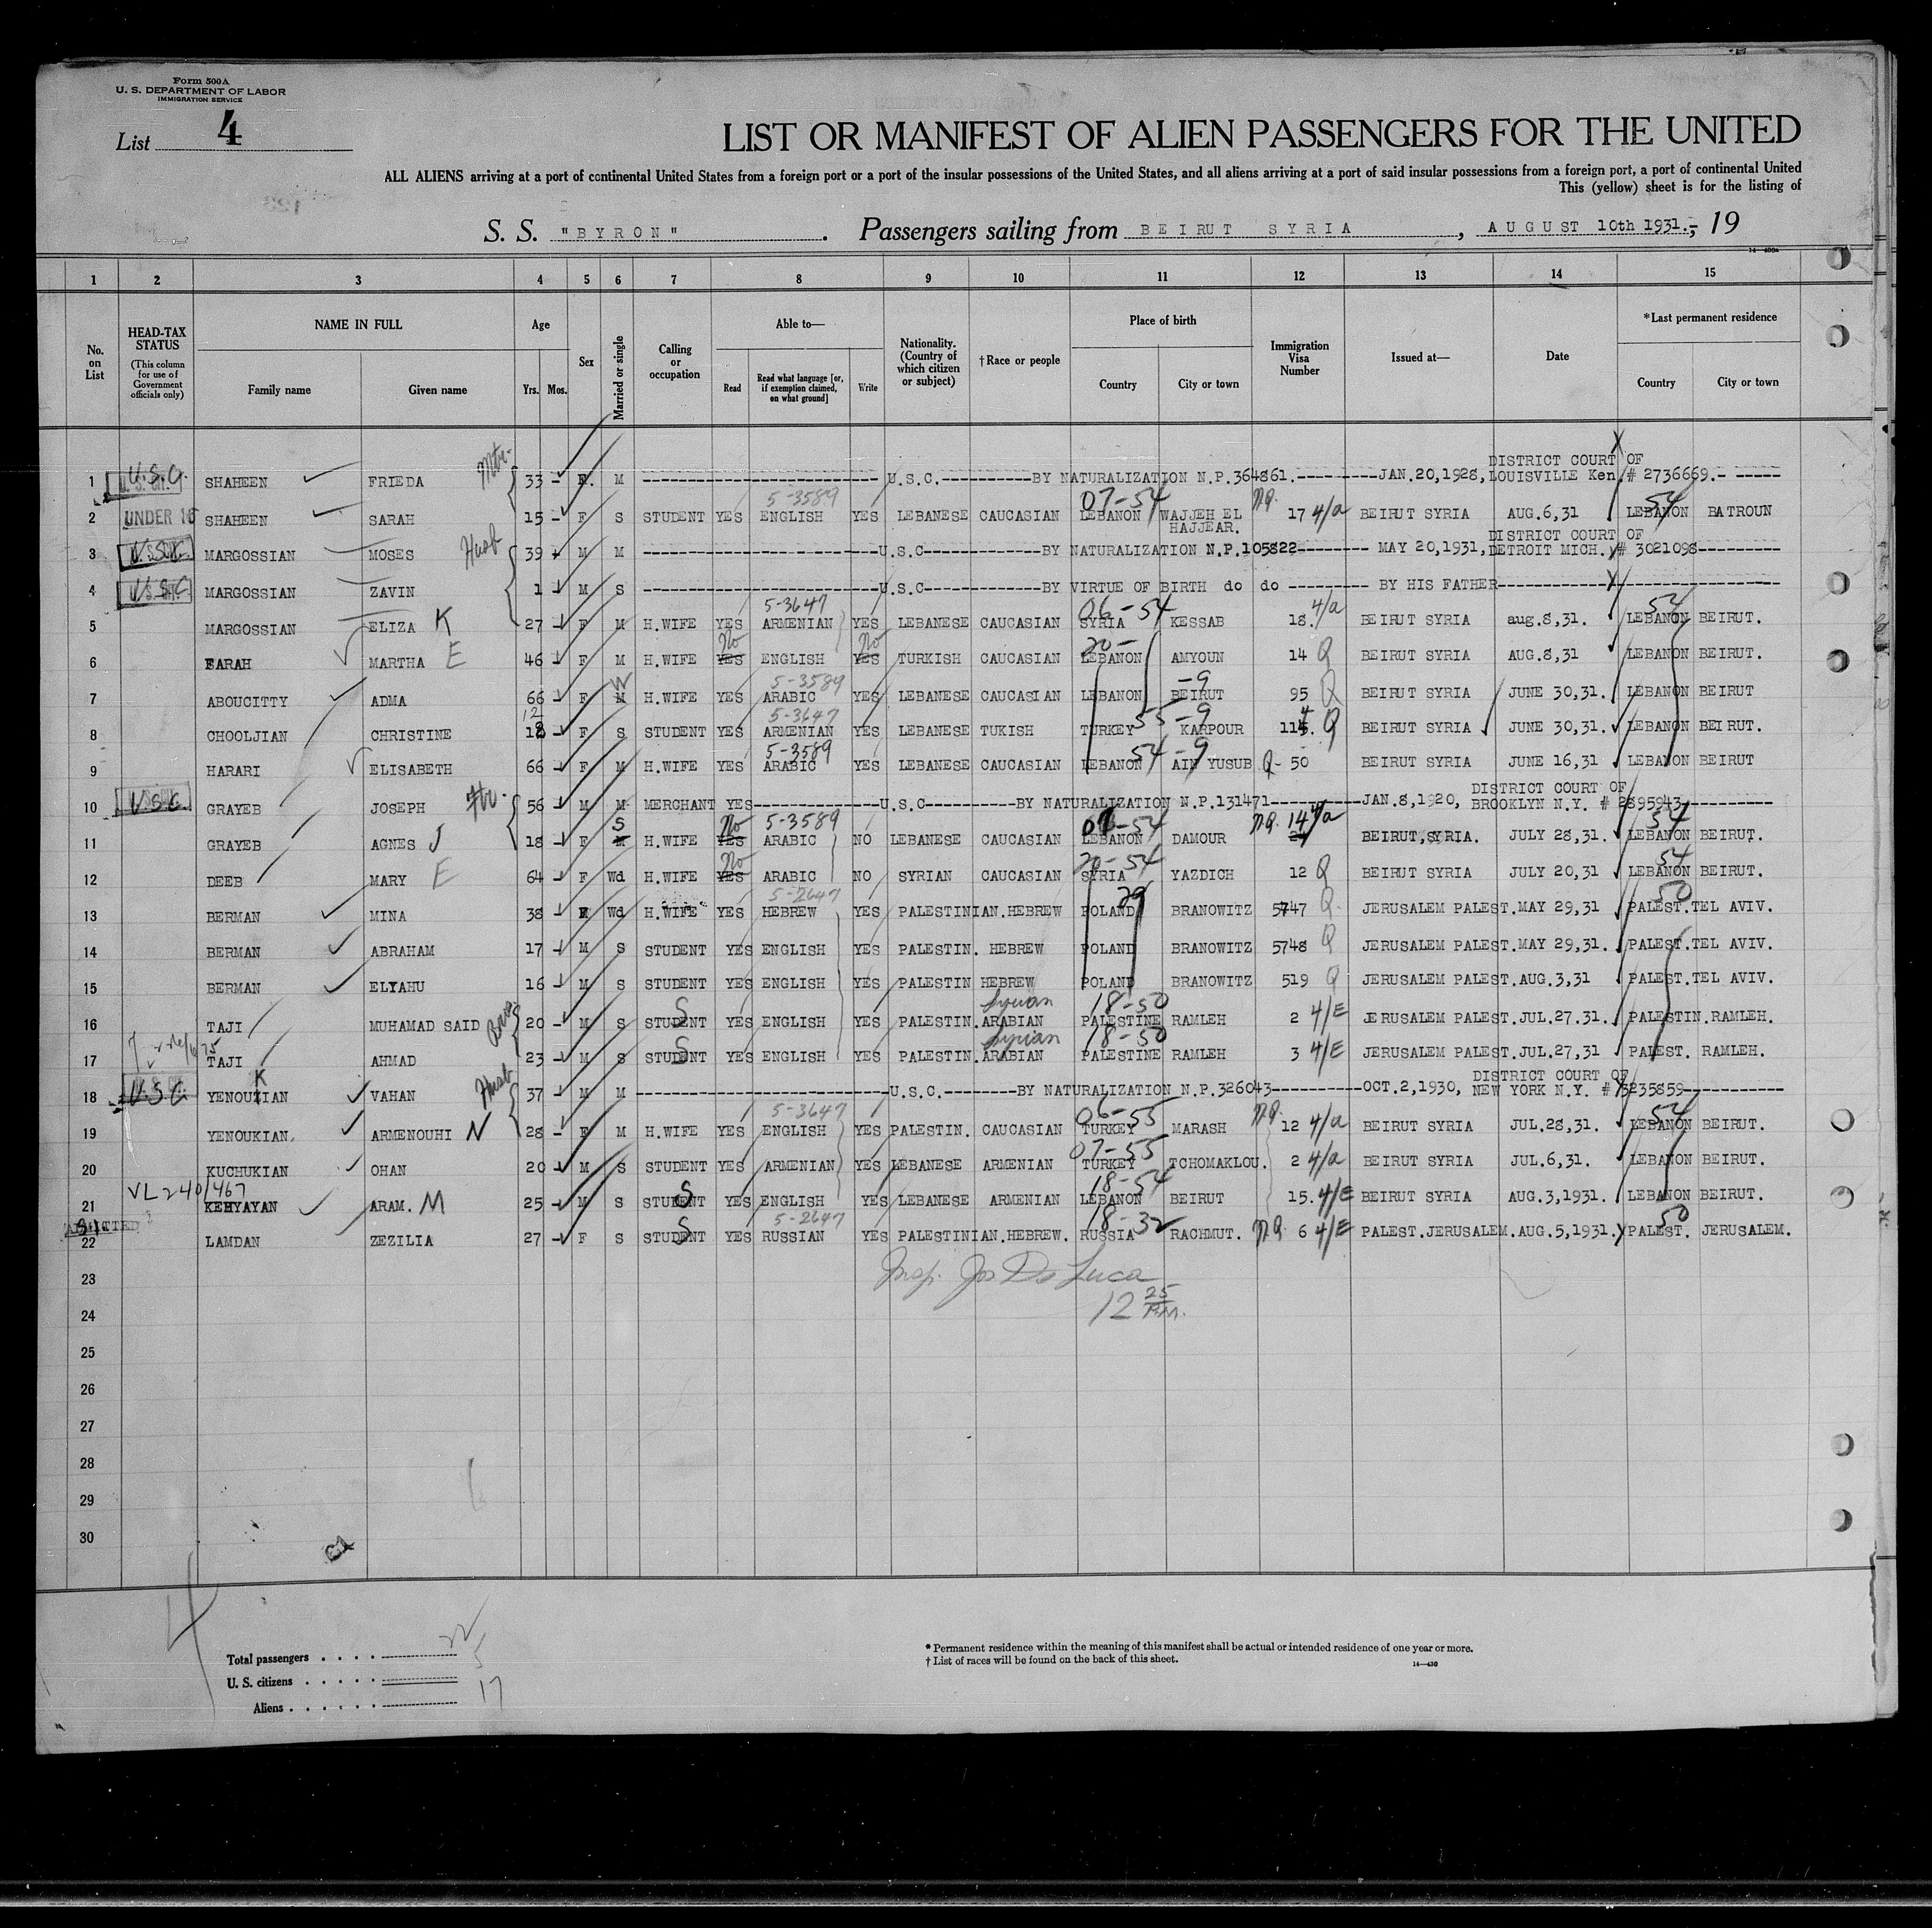 Form 500A
U. S. DEPARTMENT OF LABOR
IMMIGRATION SERVICE
List 4
LIST OR MANIFEST OF ALIEN PASSENGERS FOR THE UNITED
ALL ALIENS arriving at a port of continental United States from a foreign port or a port of the insular possessions of the United States, and all aliens arriving at a port of said insular possessions from a foreign port, a port of continental United
This (yellow) sheet is for the listing of
S. S. "BYRON" . Passengers sailing from BEIRUT SYRIA , AUGUST 10th 1931.; 19
1 2 3 4 5 6 7 8 9 10 11 12 13 14 15
No. on List
HEAD-TAX STATUS (This column for use of Government officials only)
NAME IN FULL
Family name Given name
Age
Yrs. Mos.
Sex
Married or single
Calling or occupation
Able to—
Read Read what language [or, if exemption claimed, on what ground] Write
Nationality. (Country of which citizen or subject)
†Race or people
Place of birth
Country City or town
Immigration Visa Number
Issued at—
Date
*Last permanent residence
Country City or town
DISTRICT COURT OF
1 U.S.C. SHAHEEN FRIEDA 33 F. M U.S.C. BY NATURALIZATION N.P.364861. JAN.20,1928, LOUISVILLE Ken. # 2736669.
5-3589 07-54 54
2 UNDER 16 SHAHEEN SARAH 15 F S STUDENT YES ENGLISH YES LEBANESE CAUCASIAN LEBANON WAJJEH EL HAJJEAR. 17 4/a BEIRUT SYRIA AUG.6,31 LEBANON BATROUN
Husb DISTRICT COURT OF
3 U.S.C. MARGOSSIAN MOSES 39 M M U.S.C BY NATURALIZATION N.P.105822 MAY 20,1931, DETROIT MICH. # 3021098
4 U.S.C. MARGOSSIAN ZAVIN 1 M S U.S.C BY VIRTUE OF BIRTH do do BY HIS FATHER
5-3647 06-54 4/a 54
5 MARGOSSIAN ELIZA K 27 F M H.WIFE YES ARMENIAN YES LEBANESE CAUCASIAN SYRIA KESSAB 18. BEIRUT SYRIA aug.8,31. LEBANON BEIRUT.
No No 20-
6 FARAH MARTHA E 46 F M H.WIFE YES ENGLISH YES TURKISH CAUCASIAN LEBANON AMYOUN 14 Q BEIRUT SYRIA AUG.8,31 LEBANON BEIRUT.
W 5-3589 -9
7 ABOUCITTY ADMA 66 F M H.WIFE YES ARABIC YES LEBANESE CAUCASIAN LEBANON BEIRUT 95 Q BEIRUT SYRIA JUNE 30,31. LEBANON BEIRUT
12 5-3647 55-9
8 CHOOLJIAN CHRISTINE 18 F S STUDENT YES ARMENIAN YES LEBANESE TUKISH TURKEY KARPOUR 114. Q BEIRUT SYRIA JUNE 30,31. LEBANON BEIRUT.
5-3589 54-9
9 HARARI ELISABETH 66 F M H.WIFE YES ARABIC YES LEBANESE CAUCASIAN LEBANON AIN YUSUB Q- 50 BEIRUT SYRIA JUNE 16,31 LEBANON BEIRUT
DISTRICT COURT OF
10 U.S.C. GRAYEB JOSEPH 56 M M MERCHANT YES U.S.C BY NATURALIZATION N.P.131471 JAN.8,1920, BROOKLYN N.Y. # 2895943
S No 5-3589 14 4/a 54
11 GRAYEB AGNES J 18 F M H.WIFE YES ARABIC NO LEBANESE CAUCASIAN LEBANON DAMOUR BEIRUT,SYRIA. JULY 28,31 LEBANON BEIRUT.
No 20-54 54
12 DEEB MARY E 64 F Wd H.WIFE YES ARABIC NO SYRIAN CAUCASIAN SYRIA YAZDICH 12 Q BEIRUT SYRIA JULY 20,31 LEBANON BEIRUT.
5-2647 29 50
13 BERMAN MINA 38 F Wd H.WIFE YES HEBREW YES PALESTINIAN.HEBREW POLAND BRANOWITZ 5747 Q JERUSALEM PALEST. MAY 29,31 PALEST. TEL AVIV.
14 BERMAN ABRAHAM 17 M S STUDENT YES ENGLISH YES PALESTIN. HEBREW POLAND BRANOWITZ 5748 Q JERUSALEM PALEST. MAY 29,31. PALEST. TEL AVIV.
15 BERMAN ELYAHU 16 M S STUDENT YES ENGLISH YES PALESTIN HEBREW POLAND BRANOWITZ 519 Q JERUSALEM PALEST. AUG.3,31 PALEST. TEL AVIV.
S Syrian 18-50
16 TAJI MUHAMAD SAID 20 M S STUDENT YES ENGLISH YES PALESTIN. ARABIAN PALESTINE RAMLEH 2 4/E JERUSALEM PALEST. JUL.27.31. PALESTIN. RAMLEH.
S Syrian 18-50
17 TAJI AHMAD 23 M S STUDENT YES ENGLISH YES PALESTIN. ARABIAN PALESTINE RAMLEH 3 4/E JERUSALEM PALEST. JUL.27,31 PALEST. RAMLEH.
K Husb DISTRICT COURT OF
18 U.S.C. YENOUZIAN VAHAN 37 M M U.S.C. BY NATURALIZATION N.P.326043 OCT.2,1930, NEW YORK N.Y. # 3235859
5-3647 06-55 54
19 YENOUKIAN. ARMENOUHI N 28 F M H.WIFE YES ENGLISH YES PALESTIN. CAUCASIAN TURKEY MARASH 12 4/a BEIRUT SYRIA JUL.28,31. LEBANON BEIRUT.
07-55
20 KUCHUKIAN OHAN 20 M S STUDENT YES ARMENIAN YES LEBANESE ARMENIAN TURKEY TCHOMAKLOU. 2 4/a BEIRUT SYRIA JUL.6,31. LEBANON BEIRUT.
VL 240/467 S 18-54
21 KEHYAYAN ARAM. M 25 M S STUDENT YES ENGLISH YES LEBANESE ARMENIAN LEBANON BEIRUT 15. 4/E BEIRUT SYRIA AUG.3,1931. LEBANON BEIRUT.
ADMITTED S 5-2647 18-32 50
22 LAMDAN ZEZILIA 27 F S STUDENT YES RUSSIAN YES PALESTINIAN.HEBREW. RUSSIA RACHMUT. 6 4/E PALEST.JERUSALEM. AUG.5,1931. PALEST. JERUSALEM.
23 Insp. Jos De Luca
24 12 25 P.M.
25
26
27
28
29
30
4
Total passengers . . . . 22
U. S. citizens . . . . . 5
Aliens . . . . . . 17
* Permanent residence within the meaning of this manifest shall be actual or intended residence of one year or more.
† List of races will be found on the back of this sheet.
14—430